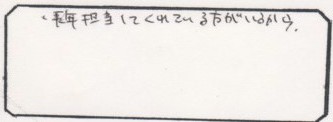 ・長年担当してくれている方がいるから。